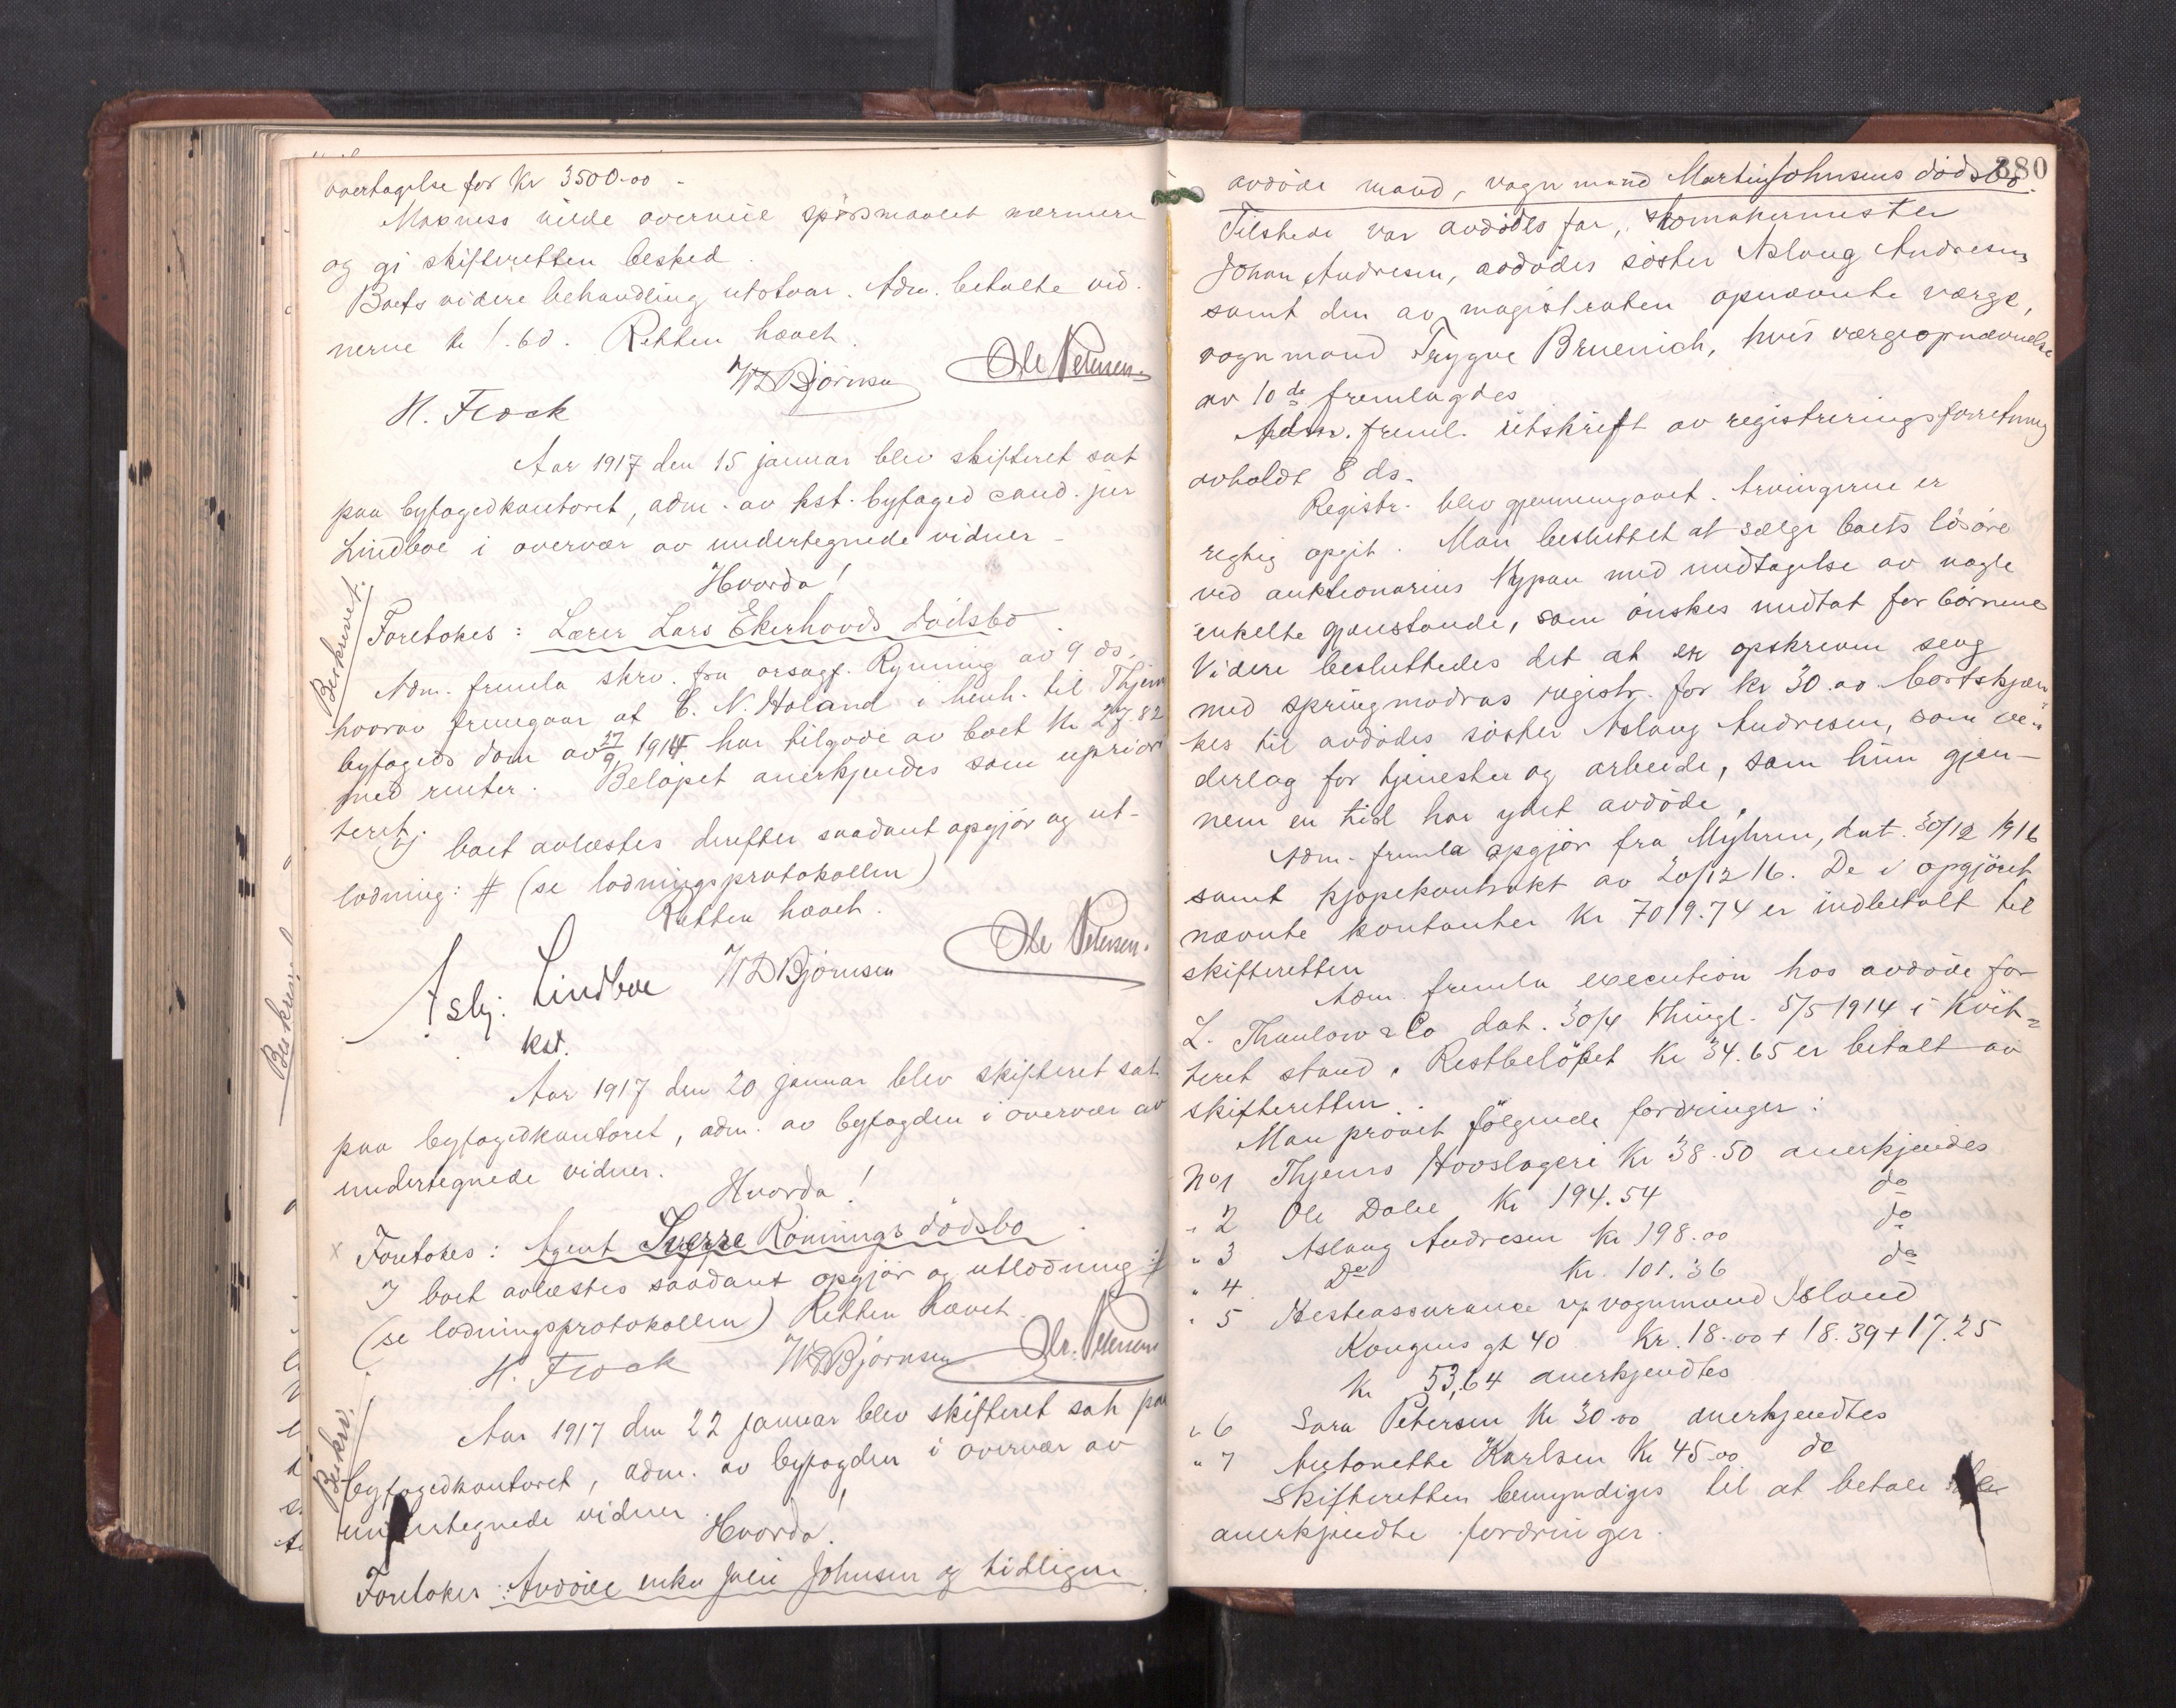 overtagelse for Kr 3500.00 -
Magness vilde overveie spörsmaalet nærmere
og gi skifteretten besked.
Boets videre behandling utstaar. Adm. betalte vid-
nerne kr 1.60. Retten hævet.
H. Frock W D Björnsen Ole Petersen.
Aar 1917 den 15 januar blev skifteret sat
paa byfogedkontoret, adm. av kst. byfoged cand. jur
Lindboe i overvær av undertegnede vidner -
Hvorda!
Beskrevet.
Foretokes: Lærer Lars Ekerhovds dödsbo.
Adm. fremla skriv. fra orsagf. Rynning av 9 ds.
hvorav fremgaar at C. N. Holand i henh. til Thjem
byfogeds dom av 27/9 1914 har tilgode av boet Kr 27.82
med renter. Belöpet anerkjendes som uprior
tert.
I boet avlæstes derefter saadant opgjör og ut-
lodning: # (se lodningsprotokollen)
Retten hævet.
Asbj: Lindboe W D Björnsen Ole Petersen.
kst.
Aar 1917 den 20 januar blev skifteret sat
paa byfogedkontoret, adm. av byfogden i overvær av
undertegnede vidner.
Hvorda!
x Foretokes: Agent Sverre Rönnings dödsbo.
I boet avlæstes saadant opgjör og utlodning: #
(se lodningsprotokollen) Retten hævet.
H. Frock W D Björnsen Ole Petersen
Beskrv.
Aar 1917 den 22 januar blev skifteret sat paa
byfogedkontoret, adm. av byfogden i overvær av
undertegnede vidner.
Hvorda!
Foretokes: Avdöde enke Julie Johnsen og tidligere
Beskrevet
380
avdöde mand, vognmand Martin Johnsens dödsbo.
Tilstede var avdödes far, skomakermester
Johan Andresen, avdödes söster Aslaug Andresen,
samt den av magistraten opnævnte værge,
vognmand Trygve Bruenich, hvis værgeopnævnelse
av 10 ds fremlagdes
Adm. freml. utskrift av registreringsforretning
avholdt 8 ds.
Registr. blev gjennemgaaet. Arvingerne er
regtig opgit. Man besluttet at sælge boets lösöre
ved auktionarius Nypan med undtagelse av nogle
enkelte gjenstande, som önskes undtat for börnene
Videre besluttedes det at en opskreven seng
med springmadras registr. for kr 30.00 bortskjæn-
kes til avdödes söster Aslaug Andresen, som ve-
derlag for tjenester og arbeide, som hun gjen-
nem en tid har ydet avdöde.
Adm. fremla opgjör fra Myhren, dat. 30/12 1916
samt kjöpekontrakt av 20/12 16. De i opgjöret
nævnte kontanter Kr 7019.74 er indbetalt til
skifteretten
Adm. fremla execution hos avdöde for
L. Thaulow & Co dat. 30/4 thingl. 5/5 1914 i kvit-
teret stand. Restbelöpet Kr 34.65 er betalt av
skifteretten.
Man prövet fölgende fordringer:
No 1 Thjems Hovslageri Kr 38.50 anerkjendes
" 2 Ole Dalee Kr 194.54 do
" 3 Aslaug Andresen Kr 198.00 do
" 4 Do Kr. 101.36 do
" 5 Hesteassurance v/ vognmand Öland
Kongens gt 40 Kr. 18.00 + 18.39 + 17.25
Kr 53,64 anerkjendtes
" 6 Sara Petersen Kr 30.00 anerkjendtes
" 7 Antonette Karlsen Kr 45.00 do
Skifteretten bemyndiges til at betale
anerkjendte fordringer.